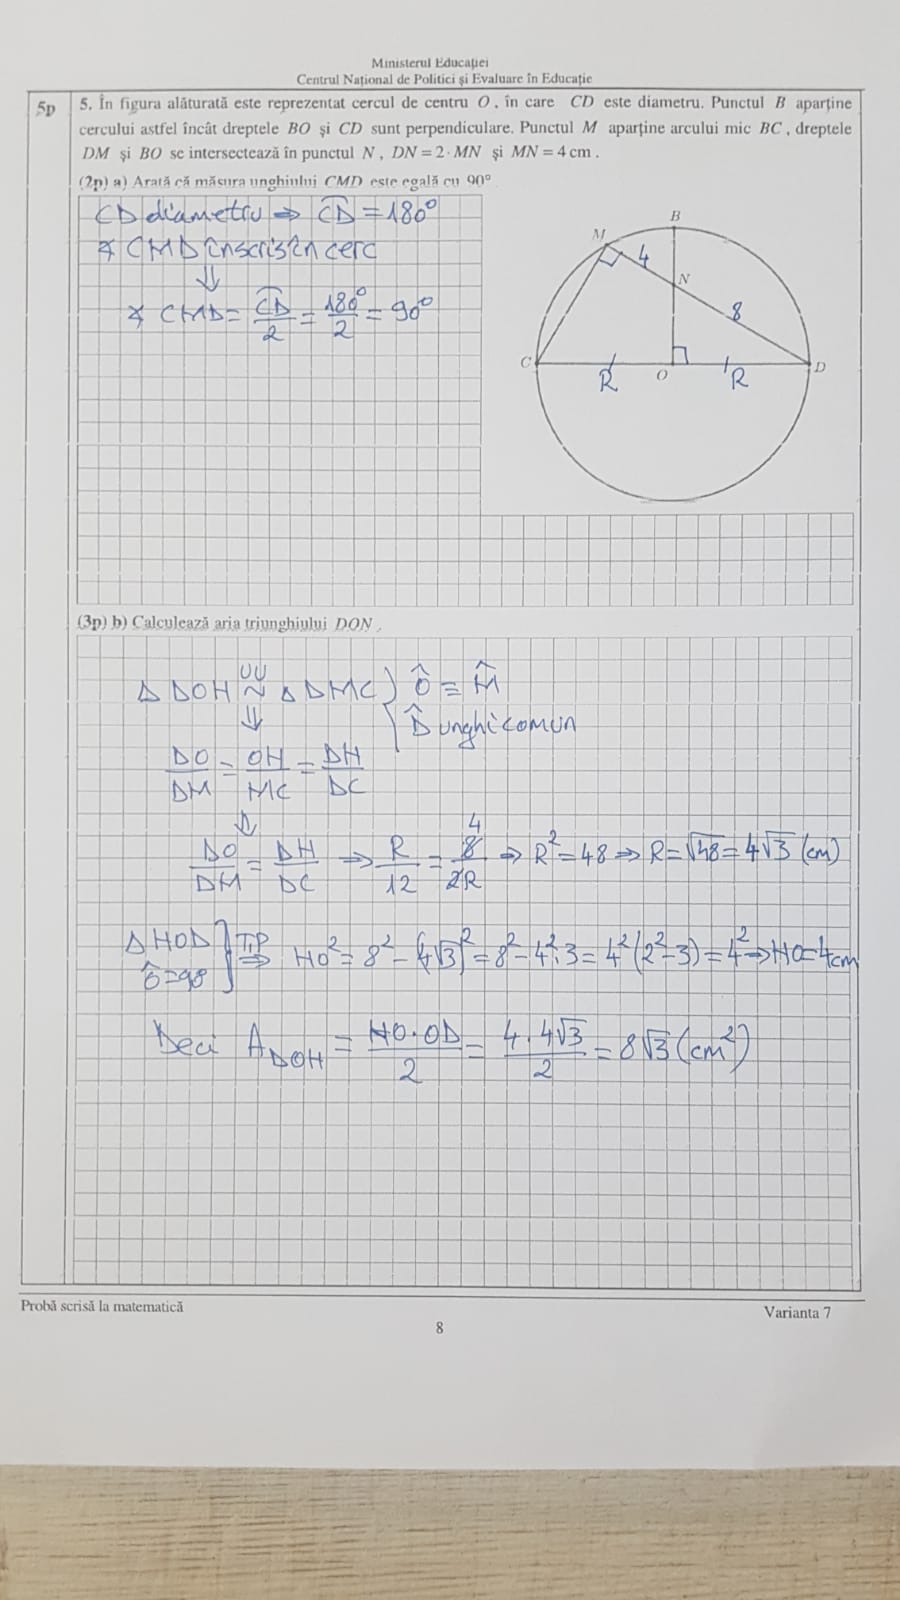 Ministerul Educației
Centrul Național de Politici și Evaluare în Educație
5p
5. În figura alăturată este reprezentat cercul de centru O , în care CD este diametru. Punctul B aparține
cercului astfel încât dreptele BO și CD sunt perpendiculare. Punctul M aparține arcului mic BC , dreptele
DM și BO se intersectează în punctul N , DN = 2 · MN și MN = 4 cm .
(2p) a) Arată că măsura unghiului CMD este egală cu 90° .
CD diametru ⇒ CD = 180°
∢ CMD înscris în cerc
⇓
∢ CMD = CD/2 = 180°/2 = 90°
B
M
4
N
8
C
O
D
R
R
(3p) b) Calculează aria triunghiului DON .
Δ DON ~ (UU) Δ DMC } Ô ≡ M̂
D̂ unghi comun
⇓
DO/DM = ON/MC = DN/DC
⇓
DO/DM = DN/DC ⇒ R/12 = 8/2R 4 ⇒ R² = 48 ⇒ R = √48 = 4√3 (cm)
Δ NOD
Ô = 90 ] T.P ⇒ NO² = 8² - (4√3)² = 8² - 4²·3 = 4²(2² - 3) = 4² ⇒ NO = 4cm
Deci A DON = NO·OD/2 = 4·4√3/2 = 8√3 (cm²)
Probă scrisă la matematică
Varianta 7
8